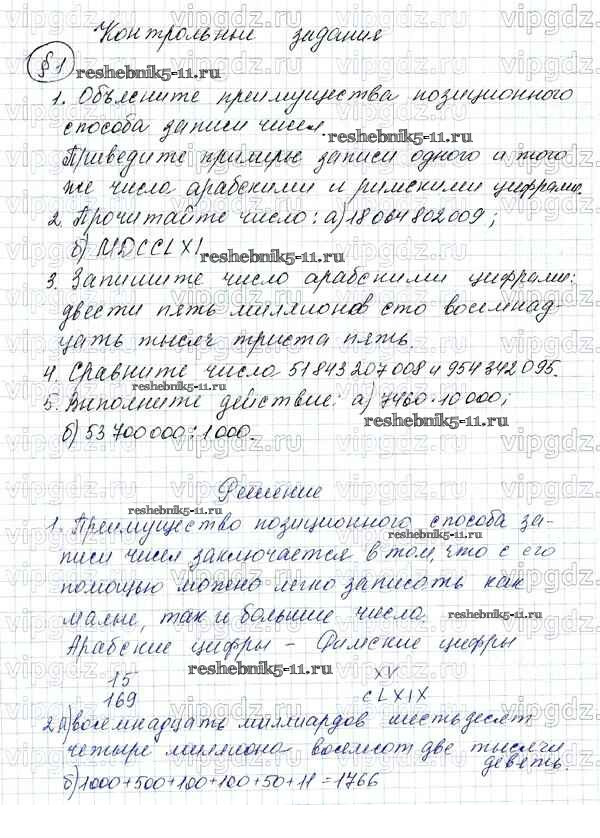 Контрольные задания
§1
reshebnik5-11.ru
1. Объясните преимущества позиционного
способа записи чисел.
reshebnik5-11.ru
Приведите примеры записи одного и того
же числа арабскими и римскими цифрами.
2. Прочитайте число: а) 18 064 802 009;
б) MDCCLXI
reshebnik5-11.ru
3. Запишите число арабскими цифрами:
двести пять миллионов сто восемнад-
цать тысяч триста пять.
4. Сравните числа 51 843 207 008 и 954 342 095.
reshebnik5-11.ru
5. Выполните действие: а) 7460·10 000;
reshebnik5-11.ru
б) 53 700 000 : 1000.
Решение
reshebnik5-11.ru
1. Преимущество позиционного способа за-
reshebnik5-11.ru
писи чисел заключается в том, что с его
помощью можно легко записать как
малые, так и большие числа.
reshebnik5-11.ru
Арабские цифры – Римские цифры
reshebnik5-11.ru
15 XV
169 CLXIX
2. а) восемнадцать миллиардов шестьдесят
четыре миллиона восемсот две тысячи
девять.
б) 1000+500+100+100+50+11=1766
vipgdz.ru